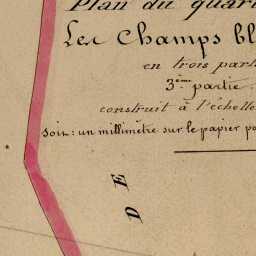 Plan du quar
Les Champs bl
en trois part
3ème partie.
construit à l'échelle
soit: un millimètre sur le papier po
DE